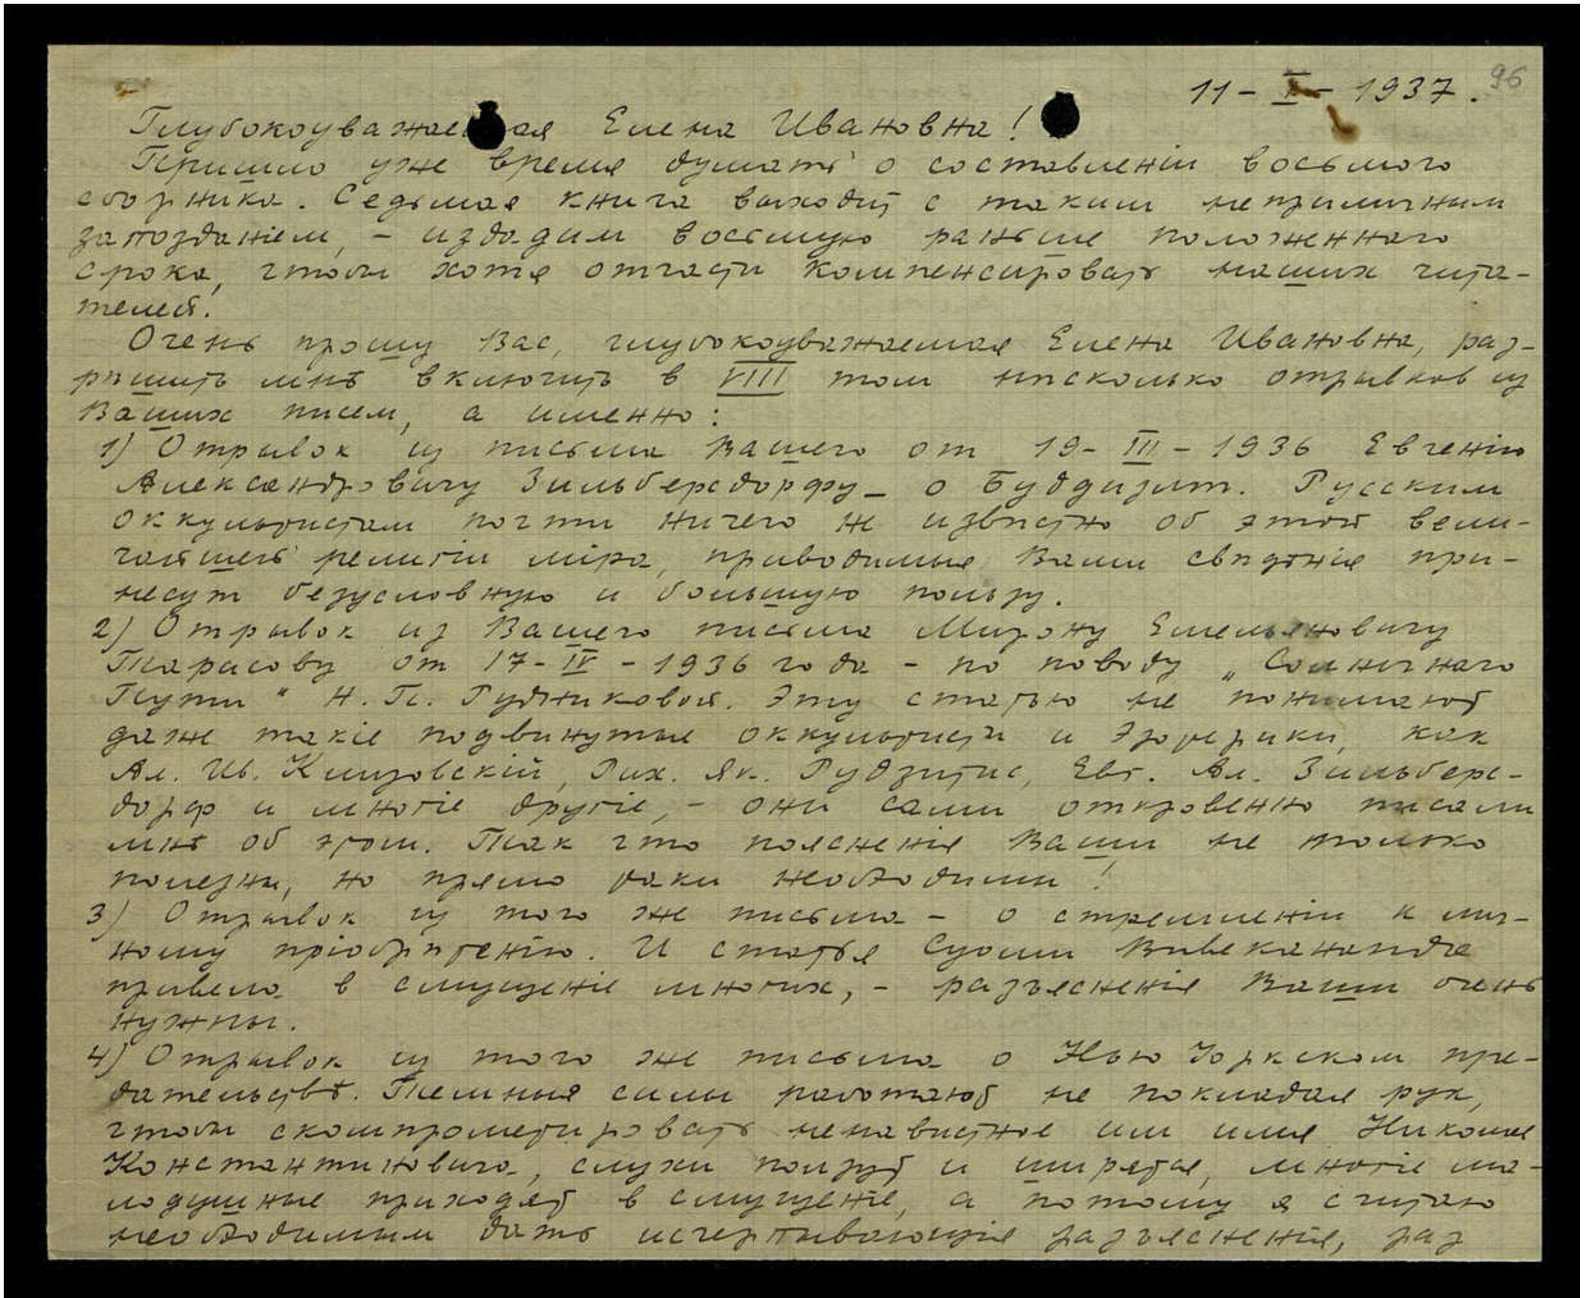 96
11 - I - 1937.
Глубокоуважаемая Елена Ивановна!
Пришло уже время думать о составленіи восьмого
сборника. Седьмая книга выходит с таким неприличным
запозданіем, - издадим восьмую раньше положеннаго
срока, чтобы хотя отчасти компенсировать наших чита-
телей.
Очень прошу Вас, глубокоуважаемая Елена Ивановна, раз-
рѣшить мнѣ включить в VIII том нѣсколько отрывков из
Ваших писем, а именно:
1) Отрывок из письма Вашего от 19 - III - 1936 Евгенію
Александровичу Зильберсдорфу - о Буддизмѣ. Русским
оккультистам почти ничего не извѣстно об этой вели-
чайшей религіи міра, приводимыя Вами свѣдѣнія при-
несут безусловную и большую пользу.
2) Отрывок из Вашего письма Мирону Емельяновичу
Тарасову от 17 - IV - 1936 года - по поводу „Солнечнаго
Пути" Н. П. Рудниковой. Эту статью не понимают
даже такіе подвинутые оккультисты и Эзотерики, как
Ал. Ив. Клизовскій, Рих. Як. Рудзитис, Евг. Ал. Зильберс-
дорф и многіе другіе, - они сами откровенно писали
мнѣ об этом. Так что поясненія Ваши не только
полезны, но прямо таки необходимы!
3) Отрывок из того же письма - о стремленіи к лич-
ному пріобрѣтенію. И статья Суоми Вивекананда
привела в смущеніе многих, - разъясненія Ваши очень
нужны.
4) Отрывок из того же письма о Нью Іоркском пре-
дательствѣ. Темныя силы работают не покладая рук,
чтобы скомпрометировать ненавистное им имя Николая
Константиновича, слухи ползут и ширятся, многіе ма-
лодушные приходят в смущеніе, а потому я считаю
необходимым дать исчерпывающія разъясненія, раз